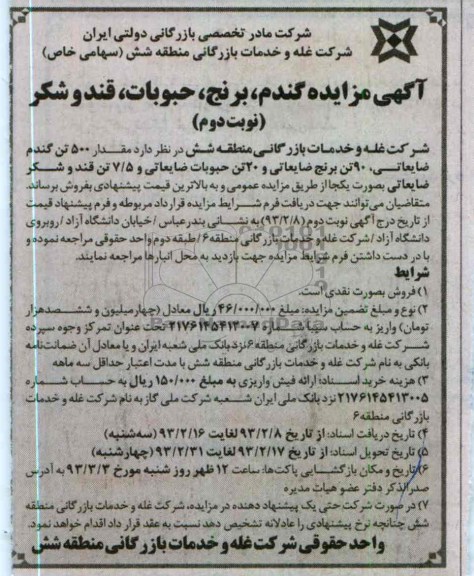 شرکت مادر تخصصی بازرگانی دولتی ایران
شرکت غله و خدمات بازرگانی منطقه شش (سهامی خاص)
آگهی مزایده گندم، برنج، حبوبات، قند و شکر
(نوبت دوم)
شرکت غله و خدمات بازرگانی منطقه شش در نظر دارد مقدار ۵۰۰ تن گندم
ضایعاتی، ۹۰تن برنج ضایعاتی و ۲۰تن حبوبات ضایعاتی و ۷/۵ تن قند و شکر
ضایعاتی بصورت یکجا از طریق مزایده عمومی و به بالاترین قیمت پیشنهادی بفروش برساند.
متقاضیان می‌توانند جهت دریافت فرم شرایط مزایده قرارداد مربوطه و فرم پیشنهاد قیمت
از تاریخ درج آگهی نوبت دوم (۹۳/۲/۸) به نشانی بندرعباس /خیابان دانشگاه آزاد /روبروی
دانشگاه آزاد /شرکت غله و خدمات بازرگانی منطقه۶ /طبقه دوم واحد حقوقی مراجعه نموده و
با در دست داشتن فرم شرایط مزایده جهت بازدید به محل انبارها مراجعه نمایند.
شرایط
۱) فروش بصورت نقدی است.
۲) نوع و مبلغ تضمین مزایده: مبلغ ۴۶/۰۰۰/۰۰۰ ریال معادل (چهارمیلیون و ششصدهزار
تومان) واریز به حساب سپرده شماره ۲۱۷۶۱۴۵۴۱۳۰۰۷ تحت عنوان تمرکز وجوه سپرده
شرکت غله و خدمات بازرگانی منطقه۶نزد بانک ملی شعبه ایران و یا معادل آن ضمانت‌نامه
بانکی به نام شرکت غله و خدمات بازرگانی منطقه شش با مدت اعتبار حداقل سه ماهه
۳) هزینه خرید اسناد: ارائه فیش واریزی به مبلغ ۱۵۰/۰۰۰ ریال به حساب شماره
۲۱۷۶۱۴۵۴۱۳۰۰۵ نزد بانک ملی ایران شعبه شرکت ملی گاز به نام شرکت غله و خدمات
بازرگانی منطقه۶
۴) تاریخ دریافت اسناد: از تاریخ ۹۳/۲/۸ لغایت ۹۳/۲/۱۶ (سه‌شنبه)
۵) تاریخ تحویل اسناد: از تاریخ ۹۳/۲/۱۷ لغایت ۹۳/۲/۳۱ (چهارشنبه)
۶) تاریخ و مکان بازگشایی پاکت‌ها: ساعت ۱۲ ظهر روز شنبه مورخ ۹۳/۳/۳ به آدرس
صدرالذکر دفتر عضو هیات مدیره
۷) در صورت شرکت حتی یک پیشنهاد دهنده در مزایده، شرکت غله و خدمات بازرگانی منطقه
شش چنانچه نرخ پیشنهادی را عادلانه تشخیص دهد نسبت به عقد قرار داد اقدام خواهد نمود.
واحد حقوقی شرکت غله و خدمات بازرگانی منطقه شش